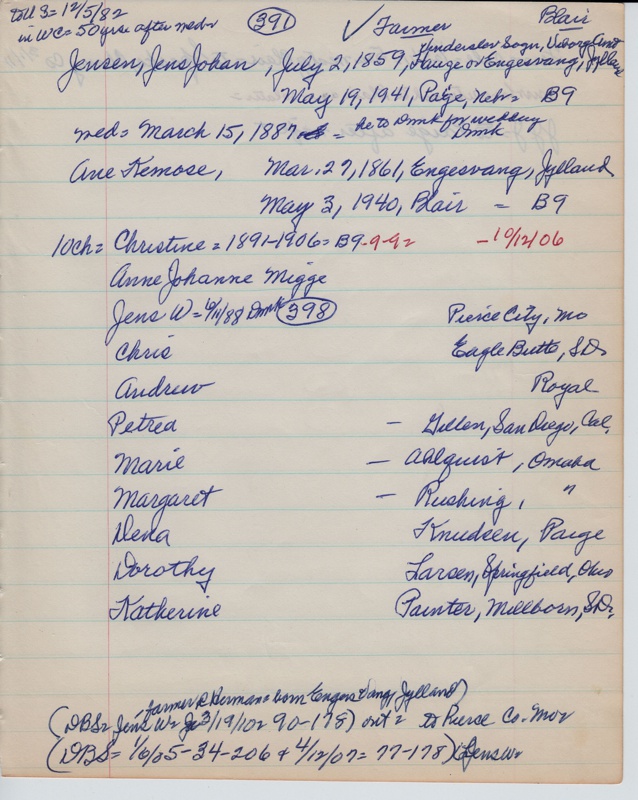 to U S = 12/5/82 (391) ✓ Farmer Blair
in WC = 50 yrs. after med=
Jensen, Jens Johan, July 2, 1859, Funge or Engesvang, Jylland
May 19, 1941, Paige, Nebr = B9
med = March 15, 1887 = he to Dmk for wedding in Dmk
Ane Kemose, Mar. 27, 1861, Engesvang, Jylland
May 3, 1940, Blair = B9
10 ch = Christine = 1891-1906 = B9-9-92 - 10/12/06
Anne Johanne Migge
Jens W = /88 Dmk (398) Pierce City, Mo
Chris Eagle Butte, S.D.
Andrew Royal
Petrea - Gillen, San Diego, Cal.
Marie - Ahlquist, Omaha
Margaret - Rushing, "
Dena Knudsen, Paige
Dorothy Larsen, Springfield, Ohio
Katherine Painter, Millborn, S.D.
farmer R Herman = born Engesvang, Jylland)
(DBS = Jens W = 3/19/10 = 90-178) out = to Pierce Co. Mo=
(DBS = 1/6/05-34-206 & 4/12/07 = 77-178) Jens W=